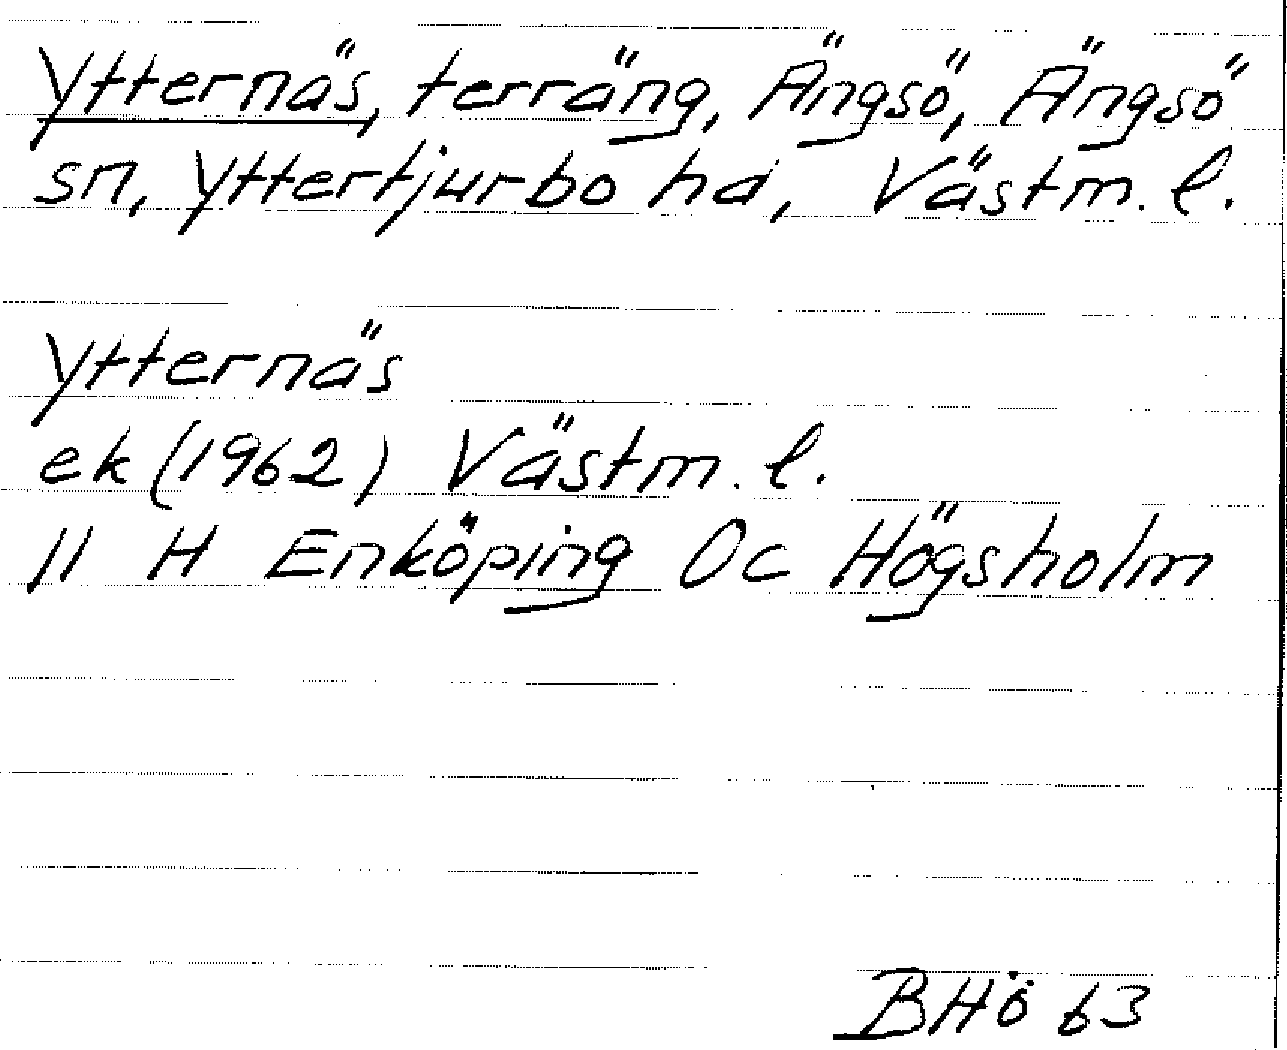 Ytternäs, terräng, Ängsö, Ängsö
sn, Yttertjurbo hd, Västm. l.
Ytternäs
ek (1962) Västm. l.
11 H Enköping 0c Högsholm
BHö 63